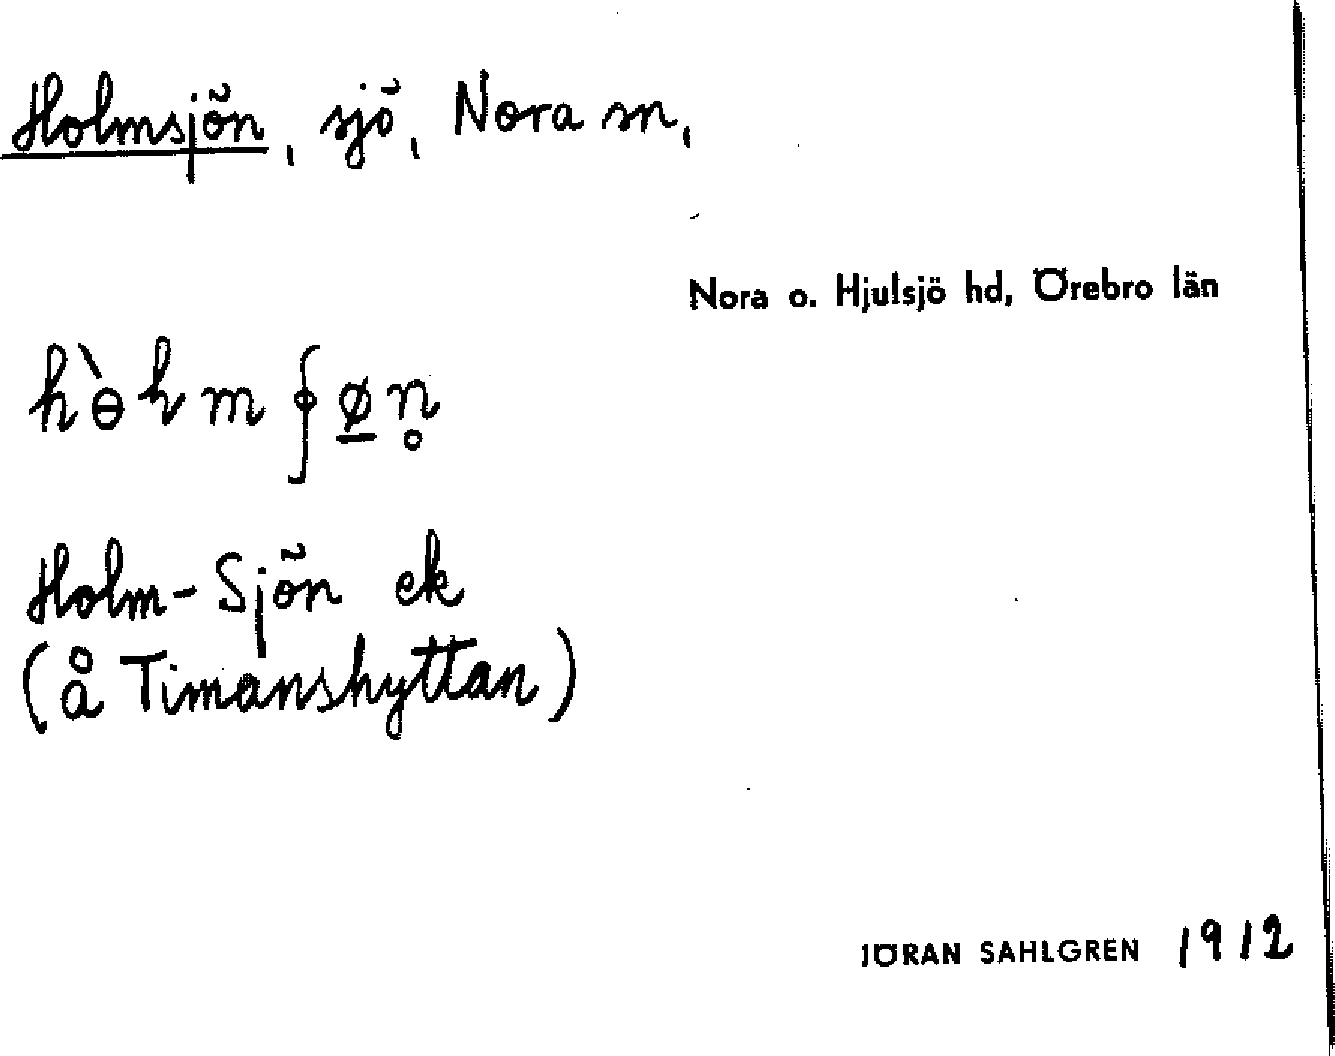 Holmsjön, sjö, Nora sn,
Nora o. Hjulsjö hd, Örebro län
Holm-Sjön ek
(å Timanshyttan)
JÖRAN SAHLGREN 1912